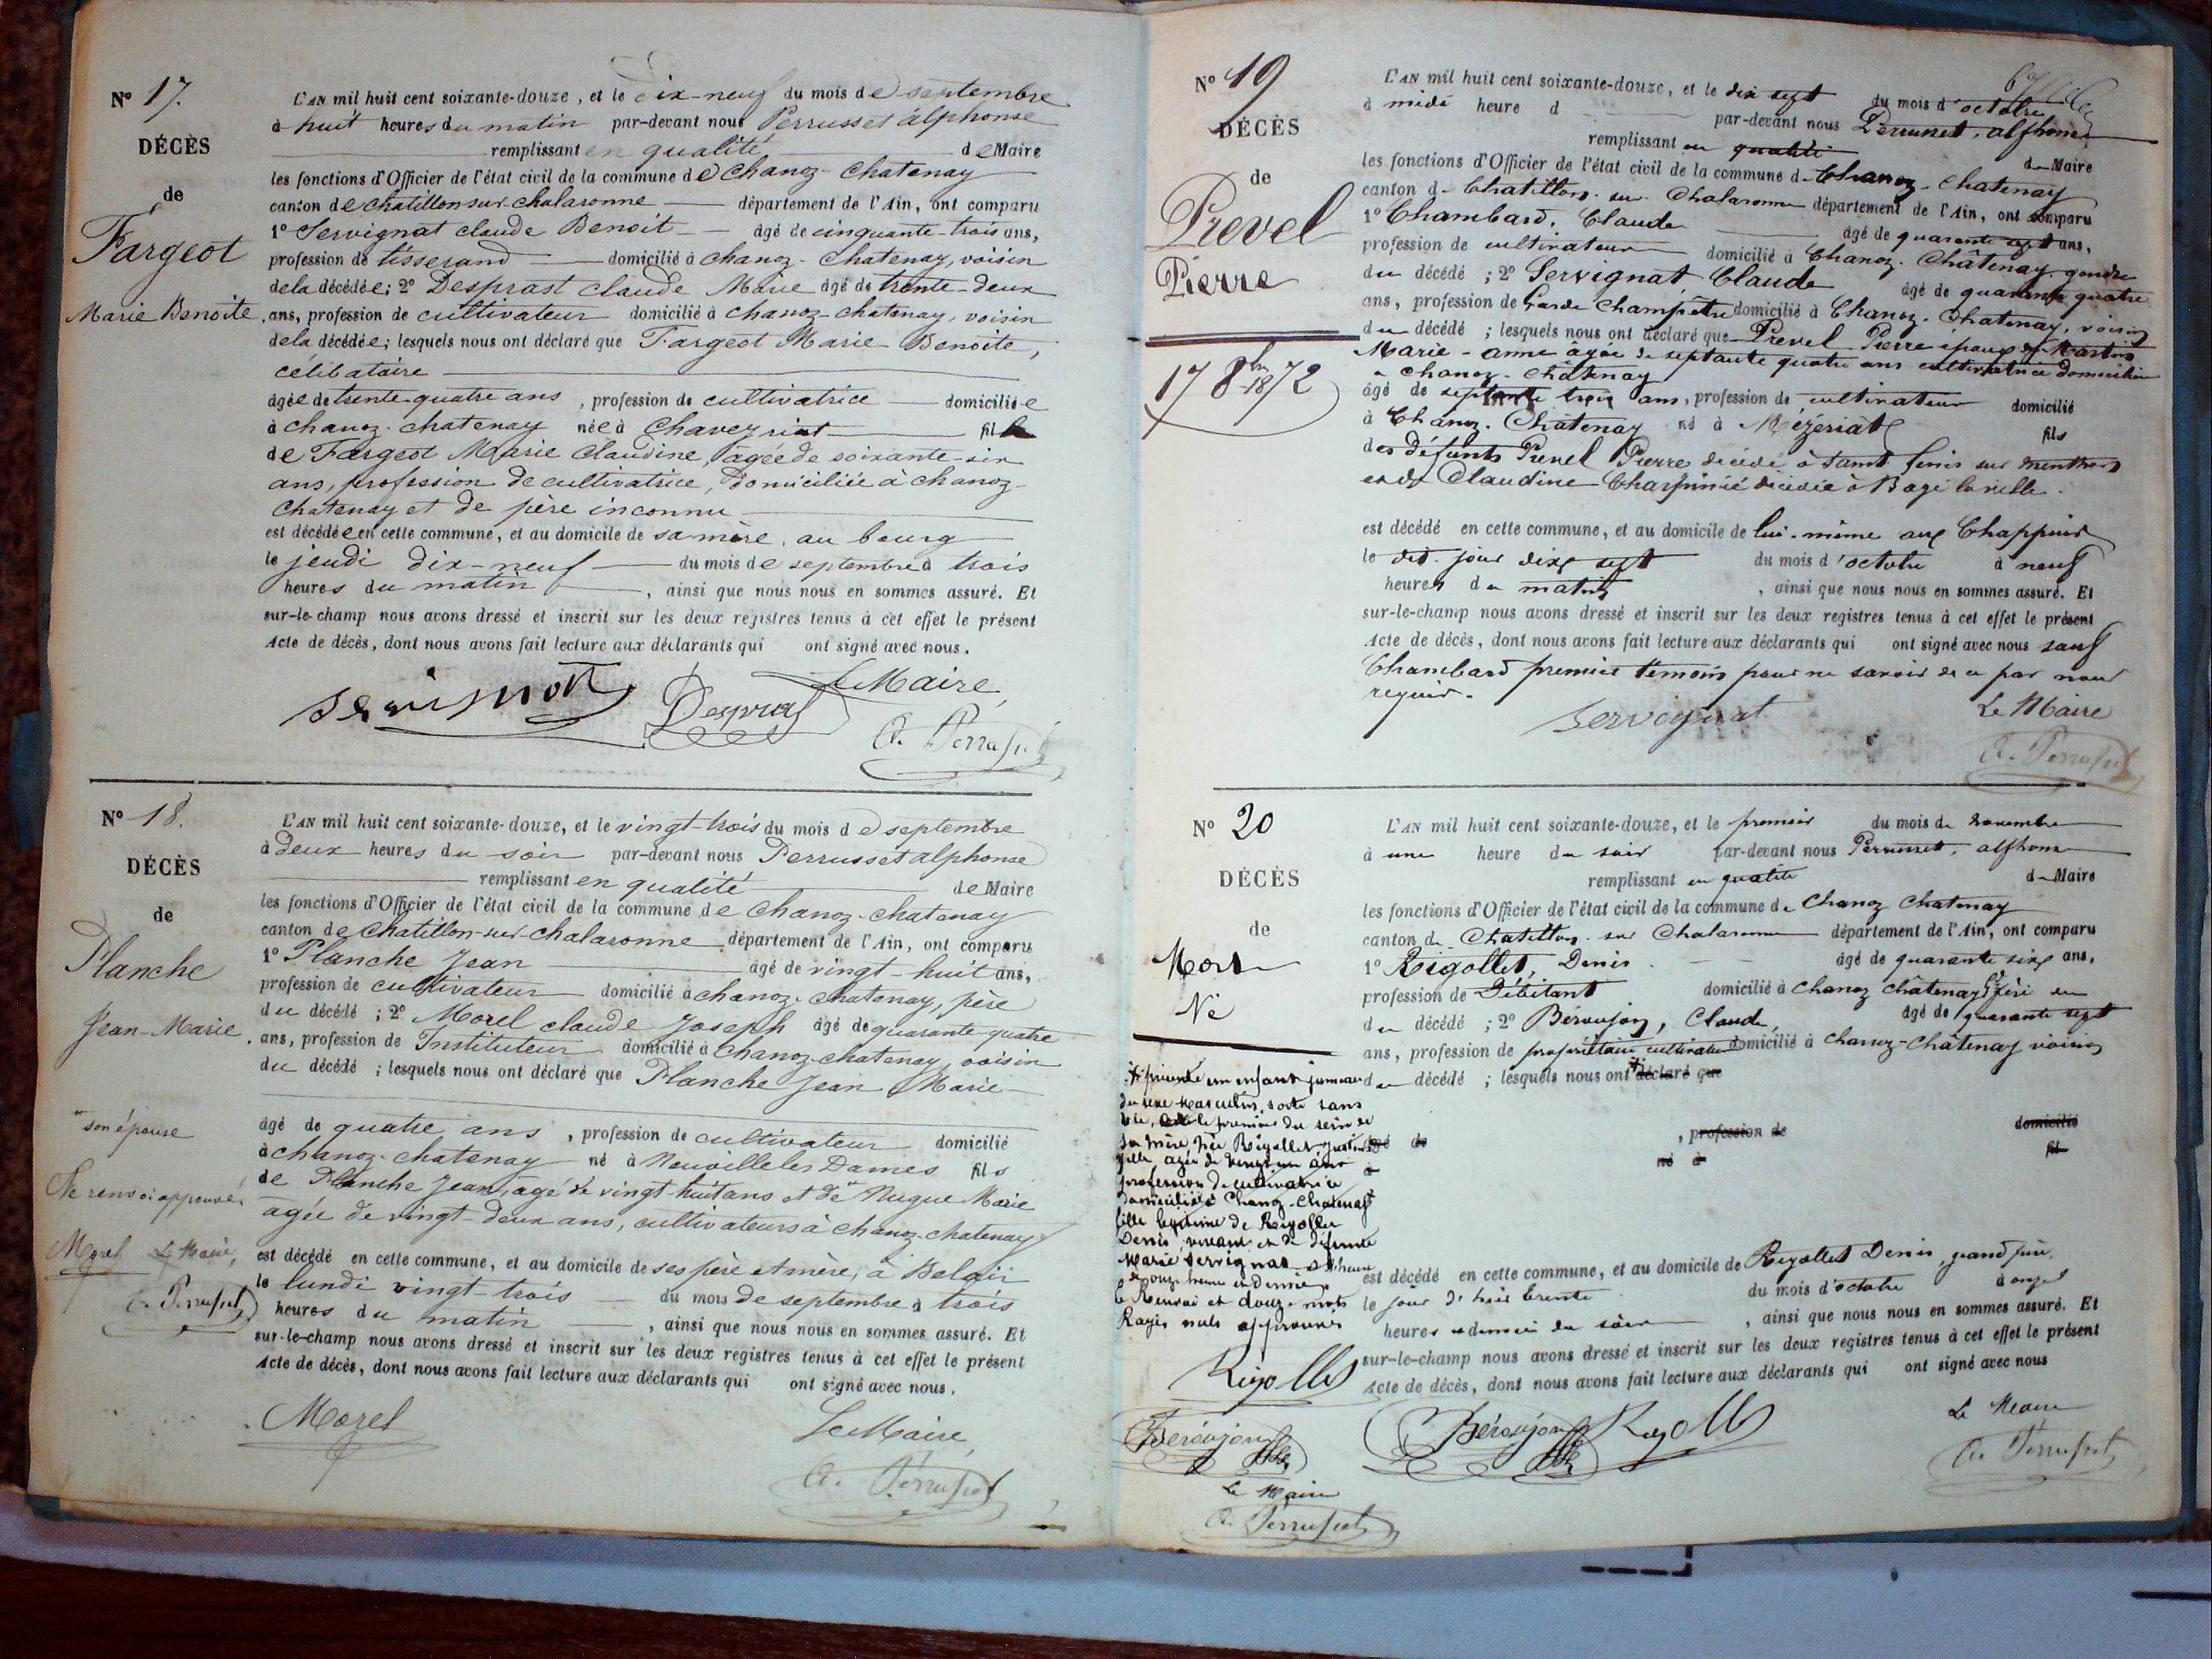 N° 17.
DÉCÈS
de
Fargeot
Marie Benoite
L'AN mil huit cent soixante-douze, et le dix-neuf du mois de septembre
à huit heures du matin par-devant nous Perrusset alphonse
remplissant en qualité de Maire
les fonctions d'Officier de l'état civil de la commune de Chanoz-Chatenay
canton de chatillon sur chalaronne département de l'Ain, ont comparu
1° Servignat claude Benoit âgé de cinquante-trois ans,
profession de tisserand domicilié à chanoz-Chatenay, voisin
de la décédée; 2° Desprast claude Marie âgé de trente-deux
ans, profession de cultivateur domicilié à chanoz-chatenay, voisin
de la décédée; lesquels nous ont déclaré que Fargeot Marie Benoite,
célibataire
âgée de trente-quatre ans, profession de cultivatrice domiciliée
à chanoz-chatenay née à Chaveyriat fille
de Fargeot Marie Claudine, agée de soixante-six
ans, profession de cultivatrice, domiciliée à chanoz-
Chatenay et de père inconnu
est décédée en cette commune, et au domicile de sa mère, au bourg
le jeudi dix-neuf du mois de septembre à trois
heures du matin, ainsi que nous nous en sommes assuré. Et
sur-le-champ nous avons dressé et inscrit sur les deux registres tenus à cet effet le présent
Acte de décès, dont nous avons fait lecture aux déclarants qui ont signé avec nous.
servignat Desprast Le Maire
A. Perrusset
N° 18.
DÉCÈS
de
Planche
Jean-Marie
L'AN mil huit cent soixante-douze, et le vingt-trois du mois de septembre
à deux heures du soir par-devant nous Perrusset alphonse
remplissant en qualité de Maire
les fonctions d'Officier de l'état civil de la commune de Chanoz-chatenay
canton de Chatillon-sur-chalaronne département de l'Ain, ont comparu
1° Planche Jean âgé de vingt-huit ans,
profession de cultivateur domicilié à chanoz-chatenay, père
du décédé; 2° Morel claude Joseph âgé de quarante-quatre
ans, profession de Instituteur domicilié à chanoz-chatenay voisin
du décédé; lesquels nous ont déclaré que Planche Jean Marie
âgé de quatre ans, profession de cultivateur domicilié
à chanoz-chatenay né à Neuville les Dames fils
de Planche Jean, agé de vingt-huit ans et de Nugue Marie
agée de vingt-deux ans, cultivateurs à chanoz-chatenay
est décédé en cette commune, et au domicile de ses père et mère, à Belair
le lundi vingt-trois du mois de septembre à trois
heures du matin, ainsi que nous nous en sommes assuré. Et
sur-le-champ nous avons dressé et inscrit sur les deux registres tenus à cet effet le présent
Acte de décès, dont nous avons fait lecture aux déclarants qui ont signé avec nous.
son épouse
Le renvoi approuvé,
Morel Le Maire,
A. Perrusset
Morel
Le Maire,
A. Perrusset
N° 19
DÉCÈS
de
Prevel
Pierre
17 8bre 1872
L'AN mil huit cent soixante-douze, et le dix sept du mois d'octobre
à midi heure d par-devant nous Perrusset, alphonse
remplissant en qualité de Maire
les fonctions d'Officier de l'état civil de la commune de Chanoz-Chatenay
canton de Chatillon-sur-Chalaronne département de l'Ain, ont comparu
1° Chambard, Claude âgé de quarante sept ans,
profession de cultivateur domicilié à Chanoz-Châtenay, gendre
du décédé; 2° Servignat, Claude âgé de quarante quatre
ans, profession de Garde Champêtre domicilié à Chanoz-Chatenay, voisin
du décédé; lesquels nous ont déclaré que Prevel Pierre époux de Martin
Marie-anne âgée de septante quatre ans cultivatrice domiciliée
à chanoz-Châtenay
âgé de septante trois ans, profession de cultivateur domicilié
à Chanoz-Châtenay né à Mézériat fils
des défunts Prevel Pierre décédé à Saint Genis sur menthon
et de Claudine Charpinié décédée à Bagé la ville.
est décédé en cette commune, et au domicile de lui-même aux Chappuis
le dit jour dix sept du mois d'octobre à neuf
heures du matin, ainsi que nous nous en sommes assuré. Et
sur-le-champ nous avons dressé et inscrit sur les deux registres tenus à cet effet le présent
Acte de décès, dont nous avons fait lecture aux déclarants qui ont signé avec nous sauf
Chambard premier témoin pour ne savoir de ce par nous
requis.
Servignat Le Maire
A. Perrusset
N° 20
DÉCÈS
de
Mort
Né
L'AN mil huit cent soixante-douze, et le premier du mois de novembre
à une heure du soir par-devant nous Perrusset, alphonse
remplissant en qualité de Maire
les fonctions d'Officier de l'état civil de la commune de Chanoz Chatenay
canton de Chatillon-sur Chalaronne département de l'Ain, ont comparu
1° Rigollet, Denis âgé de quarante six ans,
profession de Débitant domicilié à Chanoz Châtenay
du décédé; 2° Beroujon, Claude, âgé de quarante sept
ans, profession de propriétaire cultivateur domicilié à Chanoz-Châtenay voisin
du décédé; lesquels nous ont déclaré que
âgé de, profession de domicilié
à né à fil
est décédé en cette commune, et au domicile de Rigollet Denis, grand père,
le jour d'hier trente du mois d'octobre à onze
heures et demie du soir, ainsi que nous nous en sommes assuré. Et
sur-le-champ nous avons dressé et inscrit sur les deux registres tenus à cet effet le présent
Acte de décès, dont nous avons fait lecture aux déclarants qui ont signé avec nous
Beroujon Rigollet Le Maire
A. Perrusset
présenté un enfant jumeau
du sexe masculin, sorti sans
vie, le premier du sein de
sa mère née Rigollet
fille agée de vingt un ans
profession de cultivatrice
domiciliée à Chanoz-Chatenay
fille légitime de Rigollet
Denis, vivant, et de défunte
Marie Servignat
onze heures et demie
le Renvoi et douze mots
Rayés nuls approuvés
Rigollet
Beroujon
Le Maire
A. Perrusset